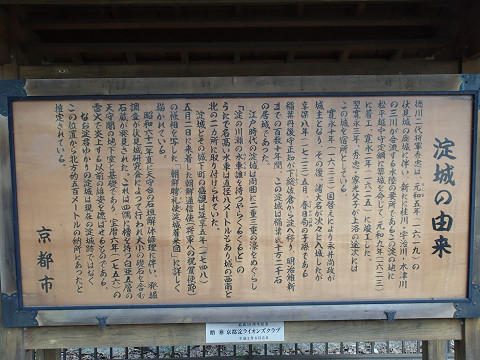 淀城の由来
徳川二代将軍秀忠は、元和五年(一六一九)の
伏見城の廃城に伴い、新たに桂川・宇治川・木津川
の三川が合流する水陸の要所であるこの淀の地に
松平越中守定綱に築城を命じて、元和九年(一六二三)
に着工、寛永二年(一六二五)に竣工した。
翌寛永三年、秀忠・家光父子が上洛の途次には
この城を宿所としている。
寛永十年(一六三三)国替えにより永井尚政が
城主となり、その後、諸大名が次々に入城したが
享保八年(一七二三)五月、春日局の子孫である
稲葉丹後守正知が下総佐倉から淀へ移り、明治維新
までの百数十年間、この淀城は稲葉氏十万二千石
の居城であった。
江戸時代の淀城は周囲に二重三重の濠をめぐらし
『淀の川瀬の水車誰を待つやらくるくると』の
うたで名高い水車は直径八メートルもあり城の西南と
北の二カ所に取り付けられていた。
淀城とその城下町の盛観は延享五年(一七四八)
五月二日に来着した朝鮮通信使(将軍への祝賀使節)
の様相を写した『朝鮮聘礼使淀城着来図』に詳しく
描かれている。
昭和六十二年夏に天守台の石垣解体修理に伴い、発掘
調査が伏見城研究会によって行われ大小の礎石を含む
石蔵が発見された。これは四隅に櫓を持つ白亜五層の
天守閣の地下室と礎であり、宝暦六年(一七五六)の
雷火で炎上する以前の雄姿を偲ばせるものである。
なお、淀君ゆかりの淀城は現在の淀城跡ではなく
この位置から北方約五百メートルの納所にあったと
推定されている。
京都市
贈 京都淀ライオンズクラブ